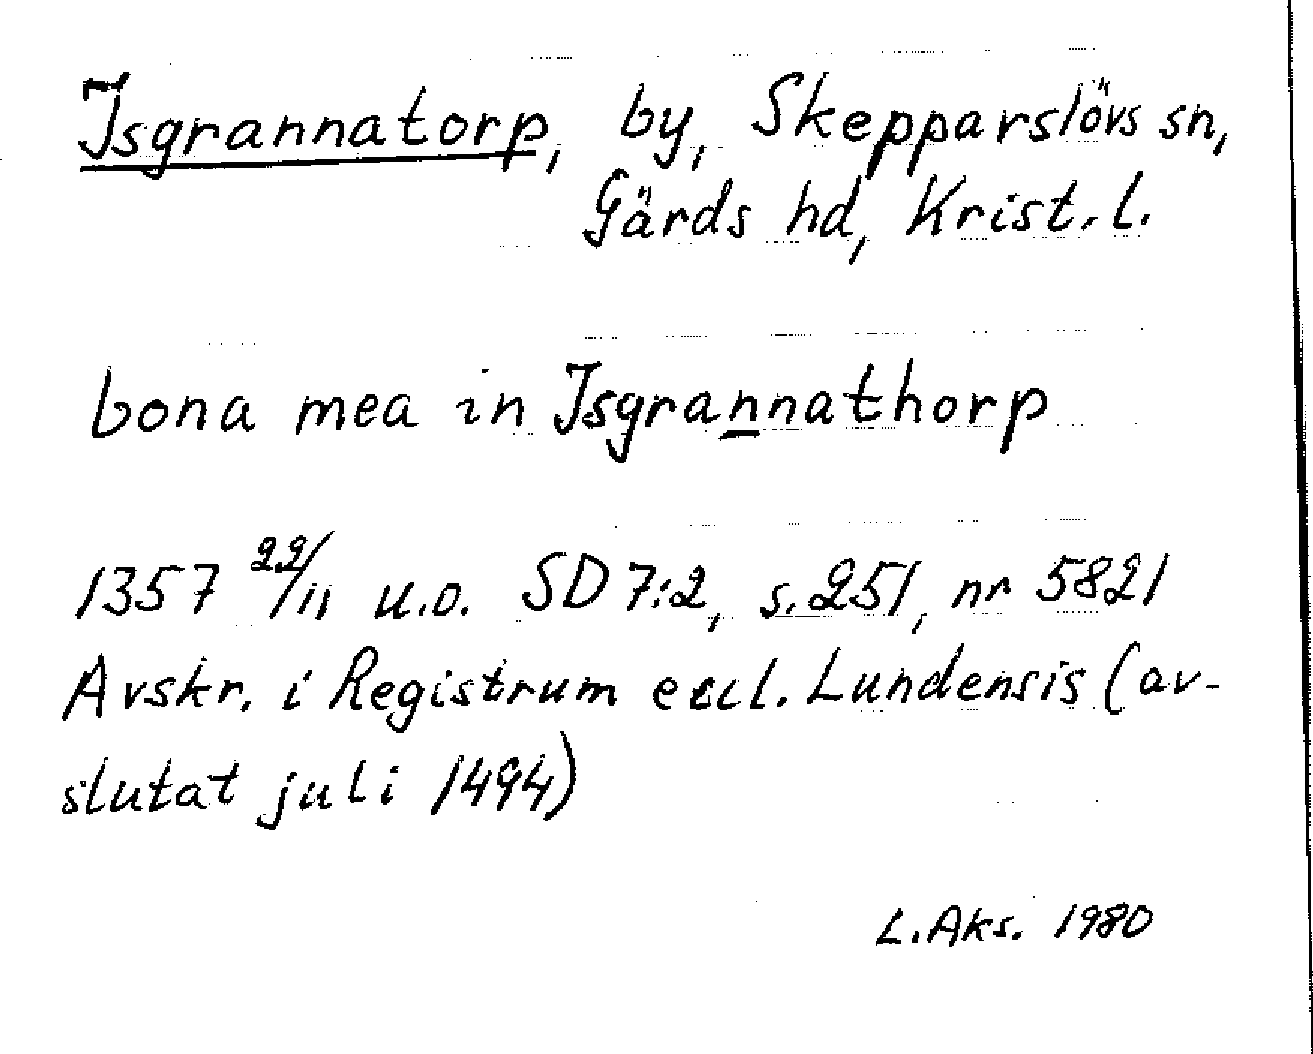 Isgrannatorp, by, Skepparslövs sn,
Gärds hd, Krist. l.
bona mea in Isgrannathorp
1357 22/11 u.o. SD 7:2, s. 251, nr 5821
Avskr. i Registrum eccl. Lundensis (av-
slutat juli 1494)
L. Aks. 1980